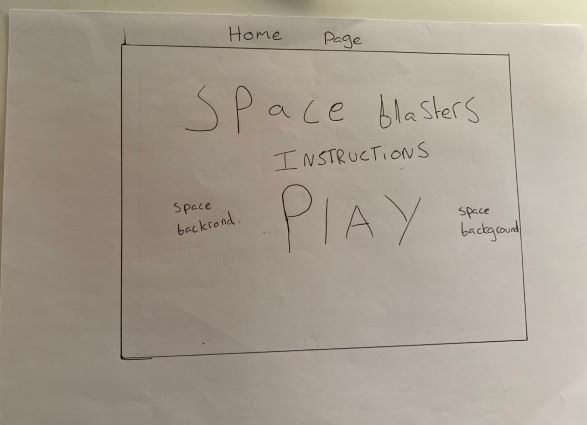 Home Page
Space blasters
INSTRUCTIONS
PlAY
space
backrond.
space
background